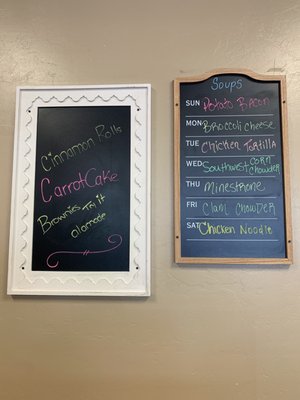 Cinnamon Rolls
Carrot Cake
Brownies Try it
alamode
Soups
SUN Potato Bacon
MON Broccoli cheese
TUE Chicken Tortilla
WED Southwest Corn Chowder
THU Minestrone
FRI Clam CHOWDER
SAT Chicken Noodle